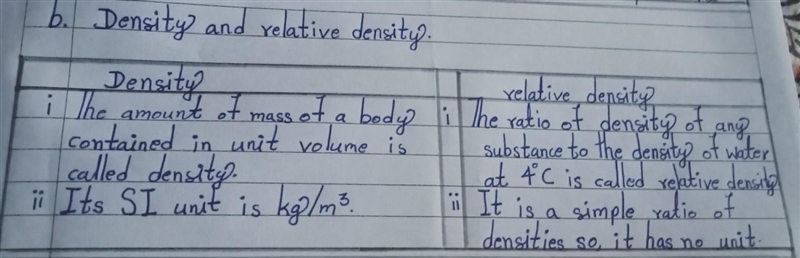 b. Density and relative density.
Density
i The amount of mass of a body
contained in unit volume is
called density.
ii Its SI unit is kg/m³.
relative density
i The ratio of density of any
substance to the density of water
at 4°C is called relative density
ii It is a simple ratio of
densities so, it has no unit.